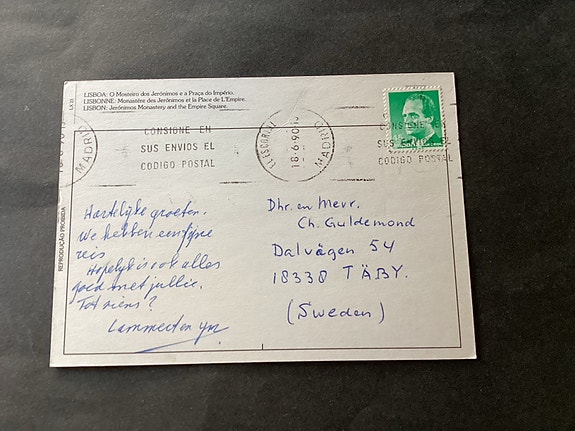 LISBOA: O Mosteiro dos Jerónimos e a Praça do Império.
LISBONNE: Monastère des Jerónimos et la Place de L'Empire.
LISBON: Jerónimos Monastery and the Empire Square.
LX 23
REPRODUÇÃO PROIBIDA
MADRID
CONSIGNE EN
SUS ENVIOS EL
CODIGO POSTAL
EL ESCORIAL
18-6-90
MADRID
CONSIGNE EN
SUS ENVIOS EL
CODIGO POSTAL
Hartelijke groeten.
We hebben een fijne
reis
Hopelijk is ook alles
goed met jullie.
Tot ziens?
Lammert en
Dhr. en Mevr.
Ch. Guldemond
Dalvägen 54
18338 TÄBY.
(Sweden)